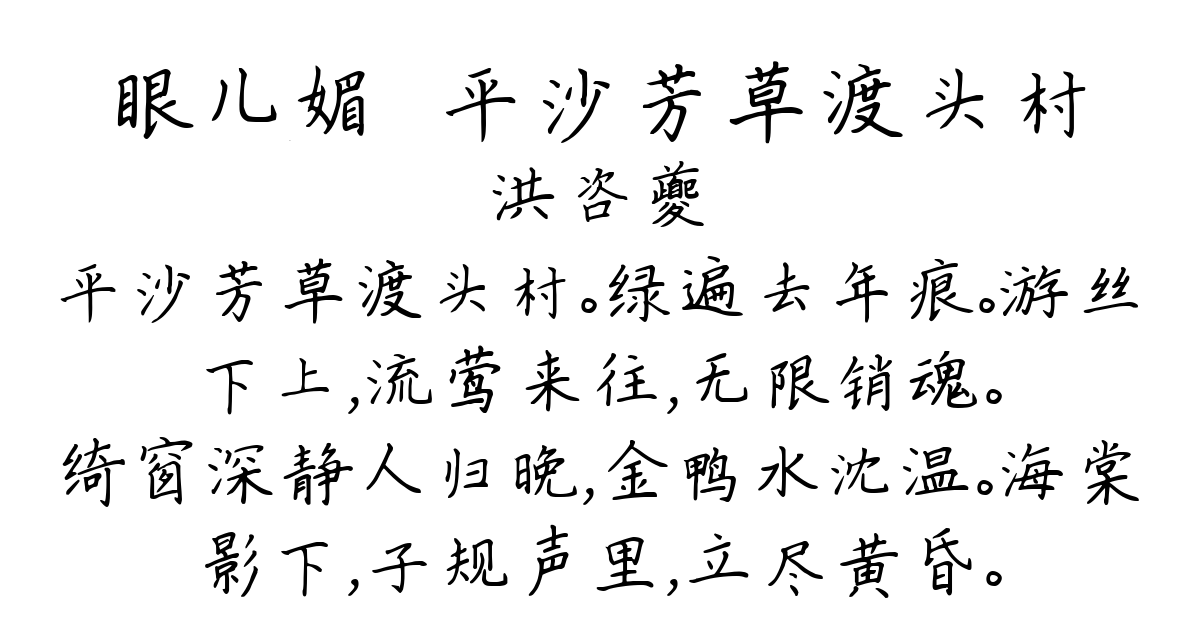 眼儿媚 平沙芳草渡头村
洪咨夔
平沙芳草渡头村。绿遍去年痕。游丝
下上,流莺来往,无限销魂。
绮窗深静人归晚,金鸭水沈温。海棠
影下,子规声里,立尽黄昏。